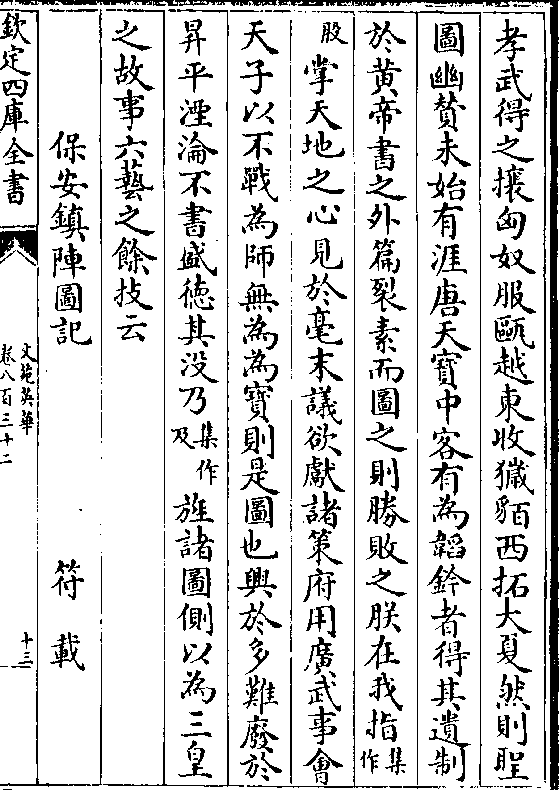 孝武得之攘匈奴服甌越東收獩貊西拓大夏然則聖
圖幽贊未始有涯唐天寶中客有為韜鈐者得其遺制
於黄帝書之外篇裂素而圖之則勝敗之朕在我指集作
股掌天地之心見於毫末議欲獻諸策府用廣武事會
天子以不戰為師無為為寶則是圖也興於多難廢於
昇平湮淪不書盛德其没乃集作及旌諸圖側以為三皇
之故事六藝之餘技云
保安鎮陣圖記 符載
欽定四庫全書
文苑英華
卷八百三十二
十三